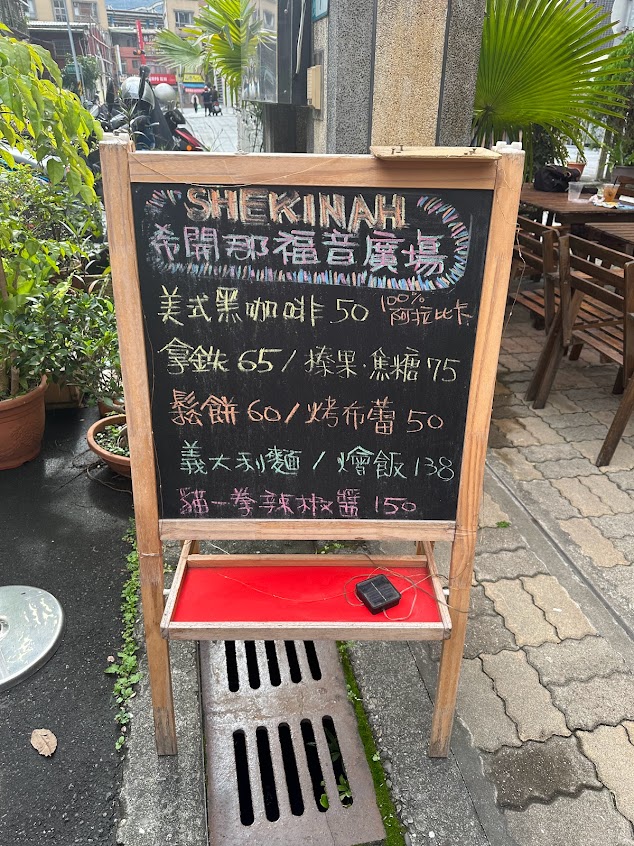 SHEKINAH
希開那福音廣場
美式黑咖啡50 100% 阿拉比卡
拿鉄65/榛果·焦糖75
鬆餅60/烤布蕾50
義大利麵/燴飯138
貓一拳辣椒醬150